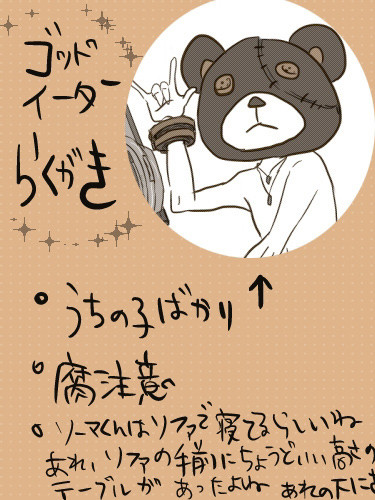 ゴッド
イーター
らくがき
うちの子ばかり
腐注意
ソーマくんはソファで寝てるらしいね
あれ、ソファの手前にちょうどいい高さの
テーブルが あったよね あれの下に